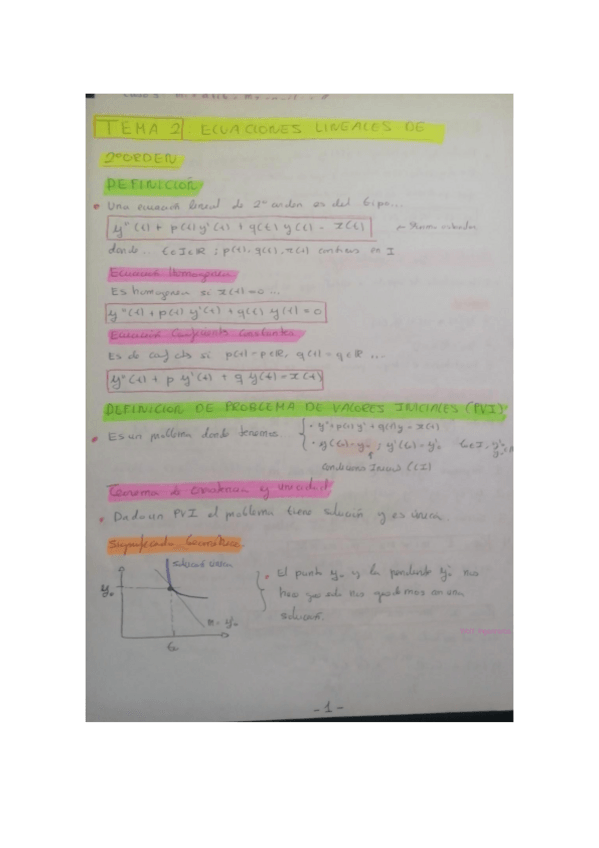 TEMA 2 ECUACIONES LINEALES DE
2º ORDEN
DEFINICIÓN
• Una ecuación lineal de 2º orden es del tipo...
y''(t) + p(t) y'(t) + q(t) y(t) = r(t)
donde... t∈I⊂ℝ ; p(t), q(t), r(t) continuas en I
Ecuación Homogénea
Es homogénea si r(t)=0 ...
y''(t) + p(t) y'(t) + q(t) y(t) = 0
Ecuación Coeficientes Constantes
Es de coef cts si p(t)=p∈ℝ, q(t)=q∈ℝ ...
y''(t) + p y'(t) + q y(t) = r(t)
DEFINICION DE PROBLEMA DE VALORES INICIALES (PVI)
• Es un problema donde tenemos
• y''+p(t)y'+q(t)y=r(t)
• y(t₀)=y₀ ; y'(t₀)=y'₀ t₀∈I,
Condiciones Iniciales (CI)
Teorema de Existencia y Unicidad
• Dado un PVI el problema tiene solución y es única
Significado Geométrico
solución única
y₀
m = y'₀
t₀
• El punto y₀ y la pendiente y'₀ nos
hace que solo nos quedemos con una
solución.
- 1 -